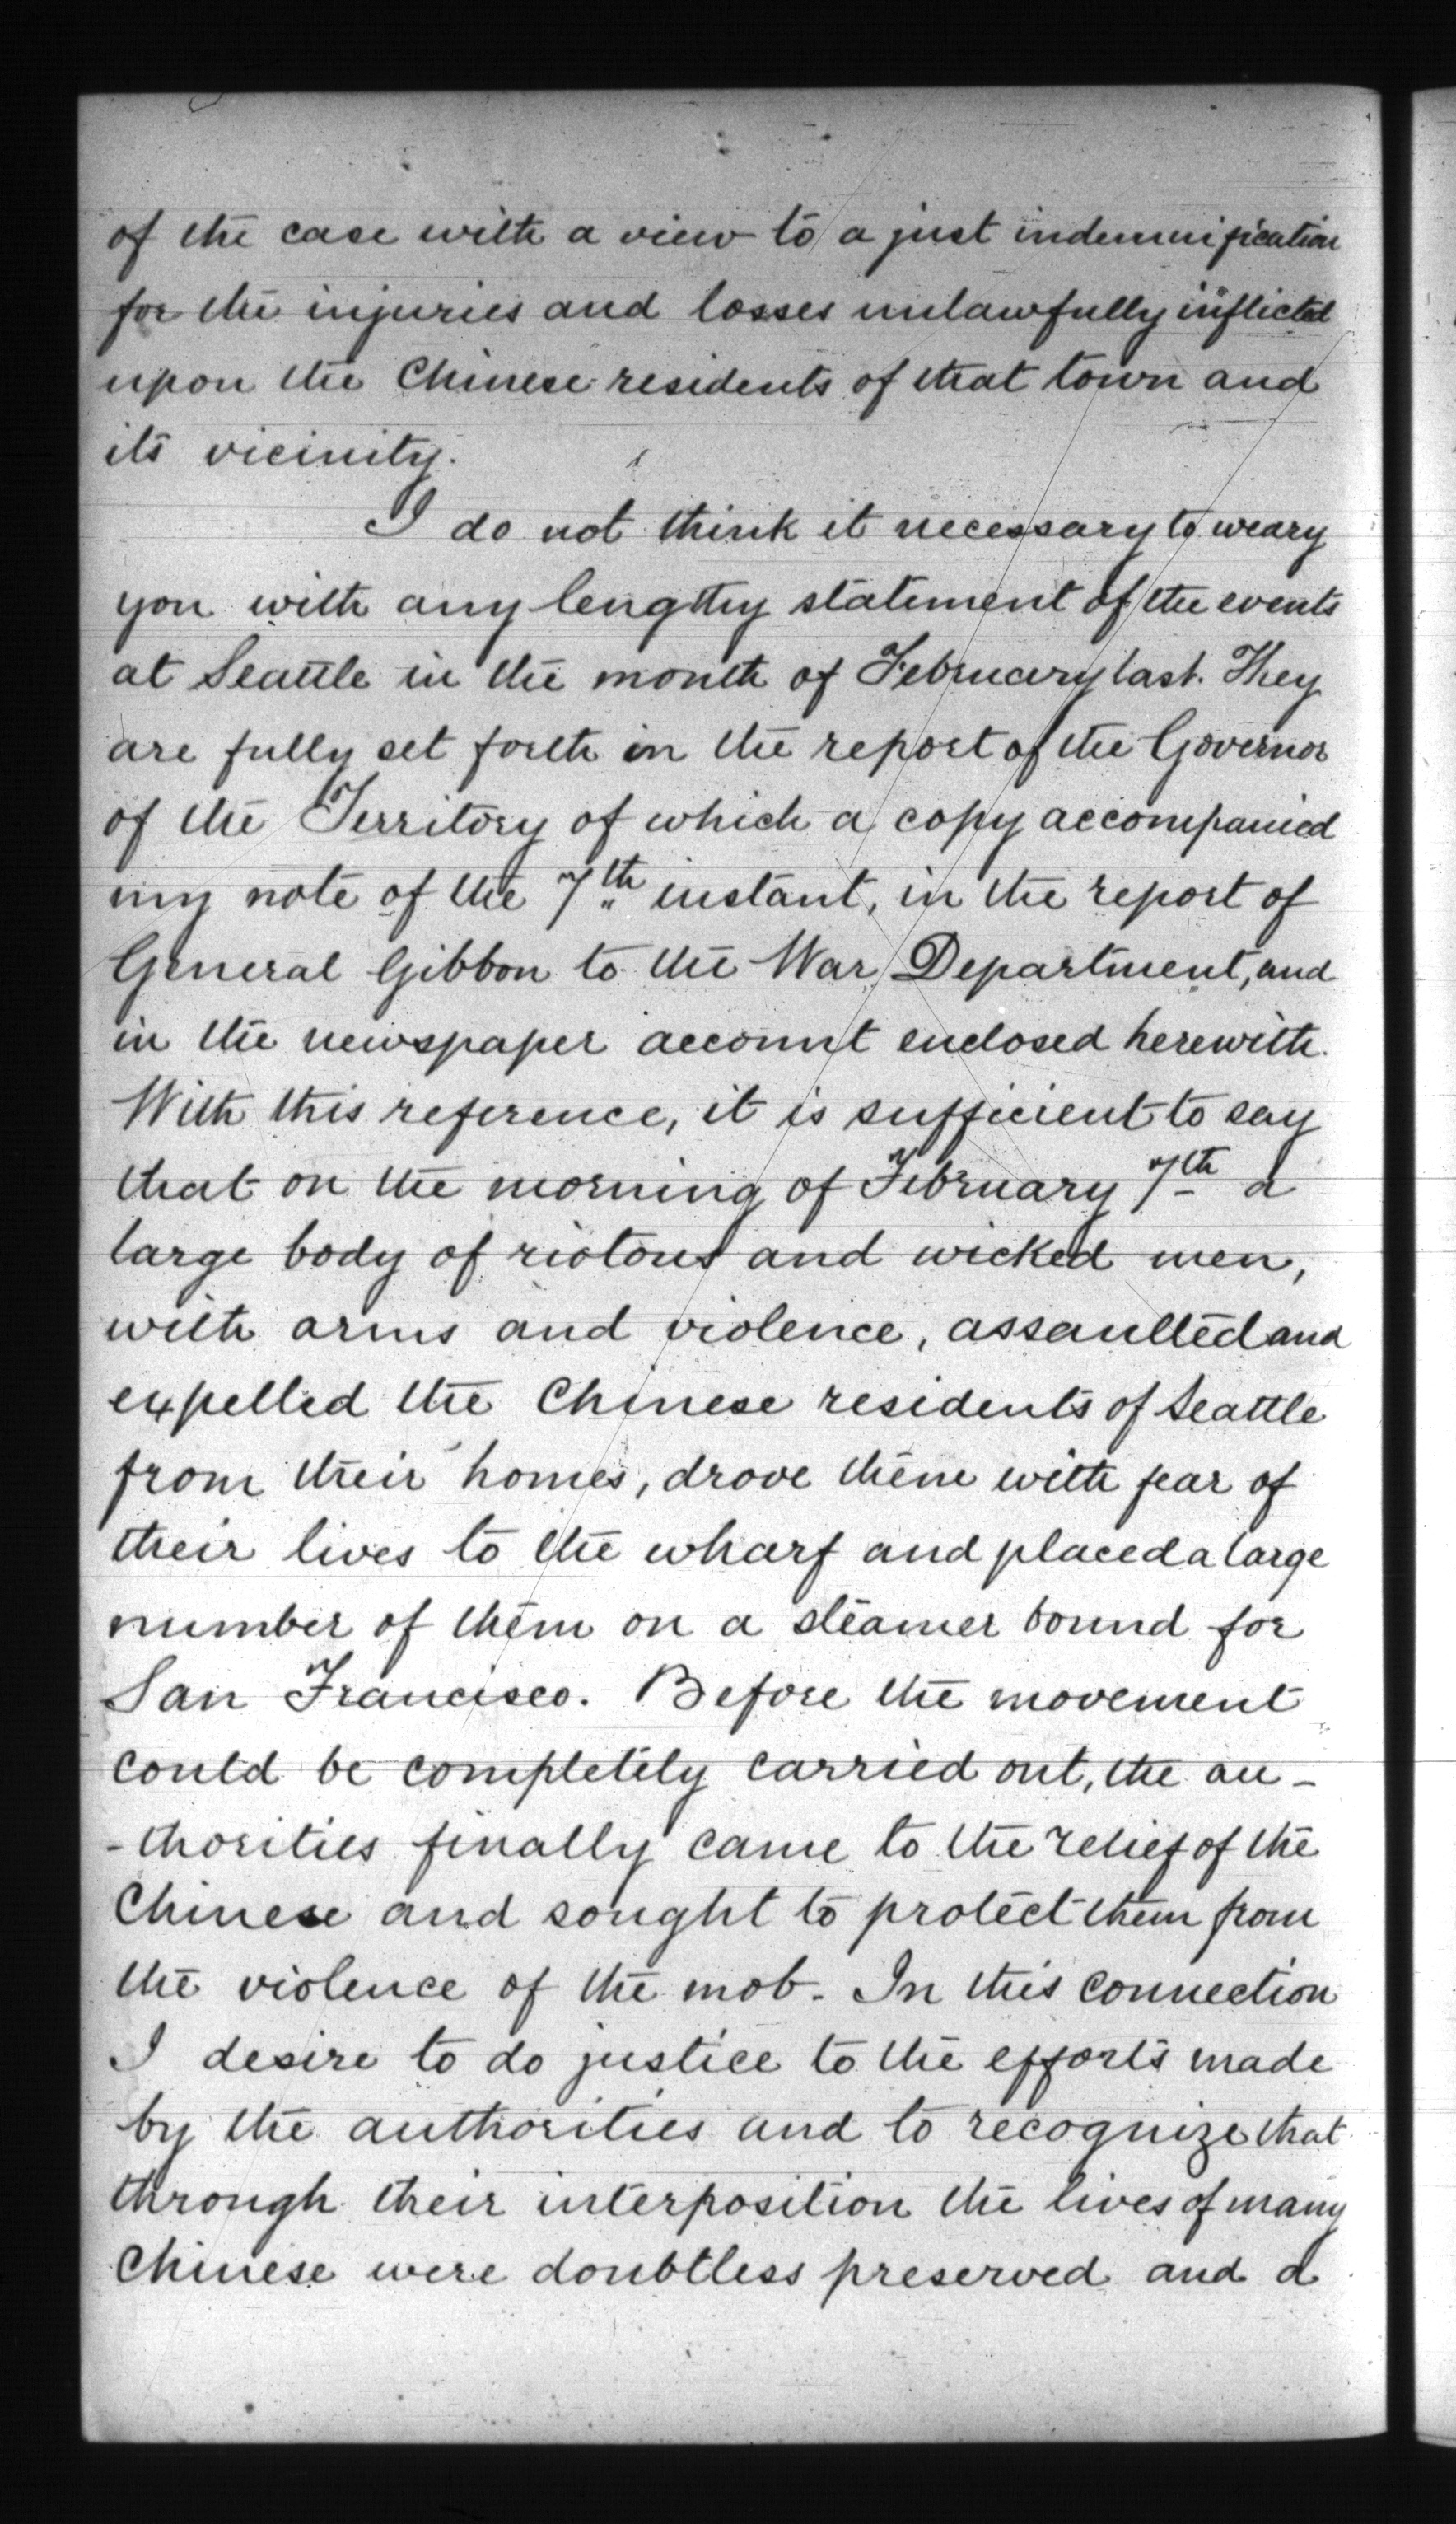 of the case with a view to a just indemnification
for the injuries and losses unlawfully inflicted
upon the Chinese residents of that town and
its vicinity.
I do not think it necessary to weary
you with any lengthy statement of the events
at Seattle in the month of February last. They
are fully set forth in the report of the Governor
of the Territory of which a copy accompanied
my note of the 7th instant, in the report of
General Gibbon to the War Department, and
in the newspaper account enclosed herewith.
With this reference, it is sufficient to say
that on the morning of February 7th a
large body of riotous and wicked men,
with arms and violence, assaulted and
expelled the Chinese residents of Seattle
from their homes, drove them with fear of
their lives to the wharf and placed a large
number of them on a steamer bound for
San Francisco. Before the movement
could be completely carried out, the au-
-thorities finally came to the relief of the
Chinese and sought to protect them from
the violence of the mob. In this connection
I desire to do justice to the efforts made
by the authorities and to recognize that
through their interposition the lives of many
Chinese were doubtless preserved and a